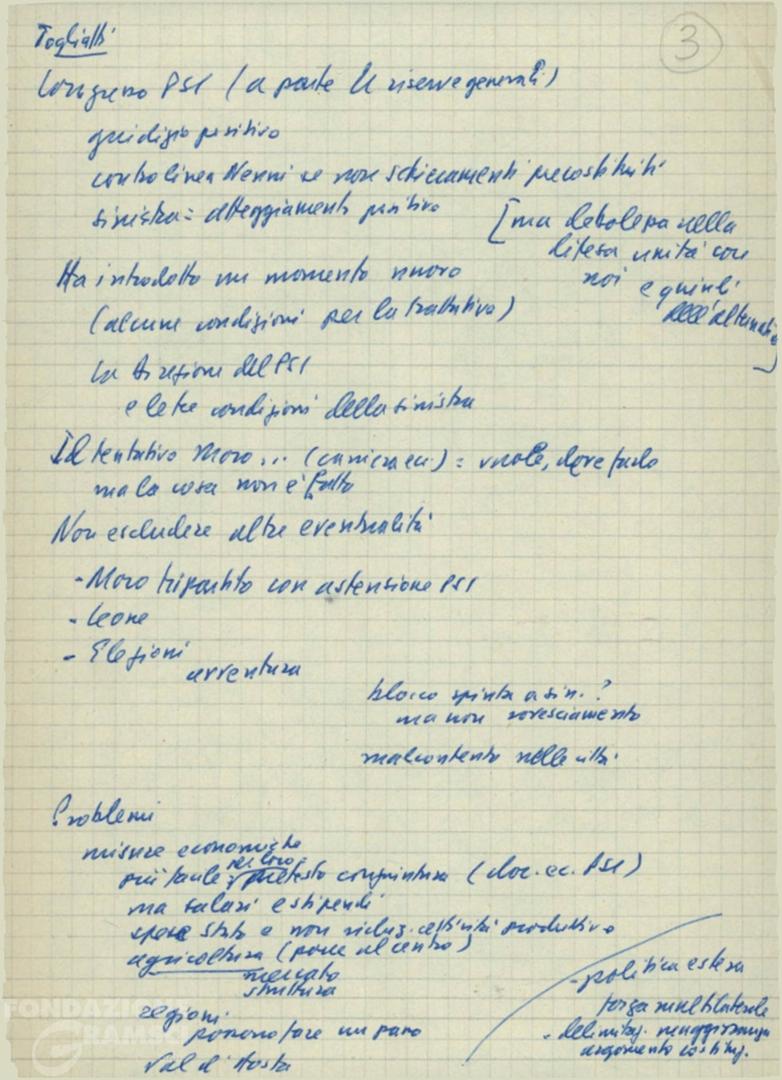 Togliatti
3
Congresso PSI (a parte le riserve generali)
giudizio positivo
contro linea Nenni se non schieramenti precostituiti
sinistra = atteggiamento positivo
[ma debolezza nella
difesa unità con
noi e quindi
dell'alternativa]
Ha introdotto un momento nuovo
(alcune condizioni per la trattativa)
la Direzione del PSI
e le tre condizioni della sinistra
Il tentativo Moro... (camicia ecc.) = vuole, deve farlo
ma la cosa non è fatta
Non escludere altre eventualità
- Moro tripartito con astensione PSI
- Leone
- Elezioni
avventura
blocco spinta a sin.?
ma non rovesciamento
malcontento nelle città.
Problemi
misure economiche
pretesto congiuntura (doc. ec. PSI)
ma salari e stipendi
spese Stato e non riduz. attività produttiva
agricoltura (porre al centro)
mercato
struttura
regioni
possono fare un passo
Val d'Aosta
- politica estera
forza multilaterale
- delimitaz. maggioranza
argomento costituz.
FONDAZIONE
GRAMSCI